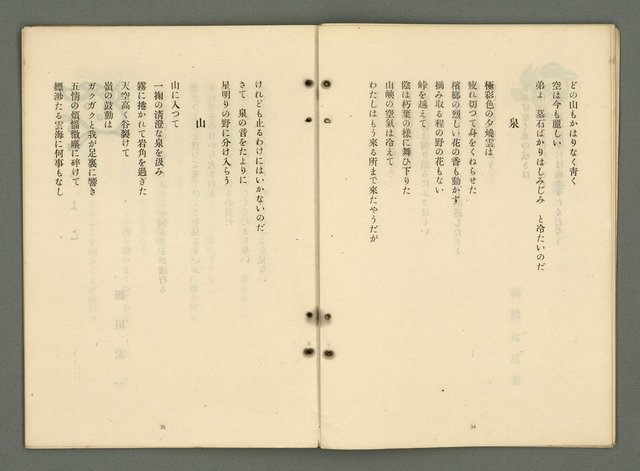 どの山もかはりなく青く
空は今も麗しい
弟よ 墓石ばかりはしみじみ と冷たいのだ
泉
極彩色の夕燒雲は
疲れ切つて身をくねらせた
檳榔の烈しい花の香も動かず
摘み取る程の野の花もない
峠を越えて
陰は朽葉の樣に舞ひ下りた
山峽の空氣は冷えて
わたしはもう來る所まで來たやうだが
34
けれども止るわけにはいかないのだ
さて 泉の音をたよりに
星明りの野に分け入らう
山
山に入つて
一掬の淸澄な泉を汲み
霧に捲かれて岩角を過ぎた
天空高く谷裂けて
嶺の鼓動は
ガクガクと我が足裏に響き
五情の煩惱微塵に碎けて
縹渺たる雲海に何事もなし
35